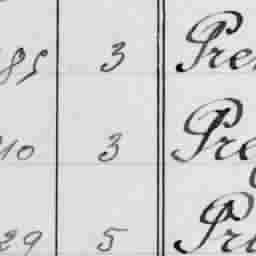 85 3 Pre
10 3 Pre
29 5 Pri